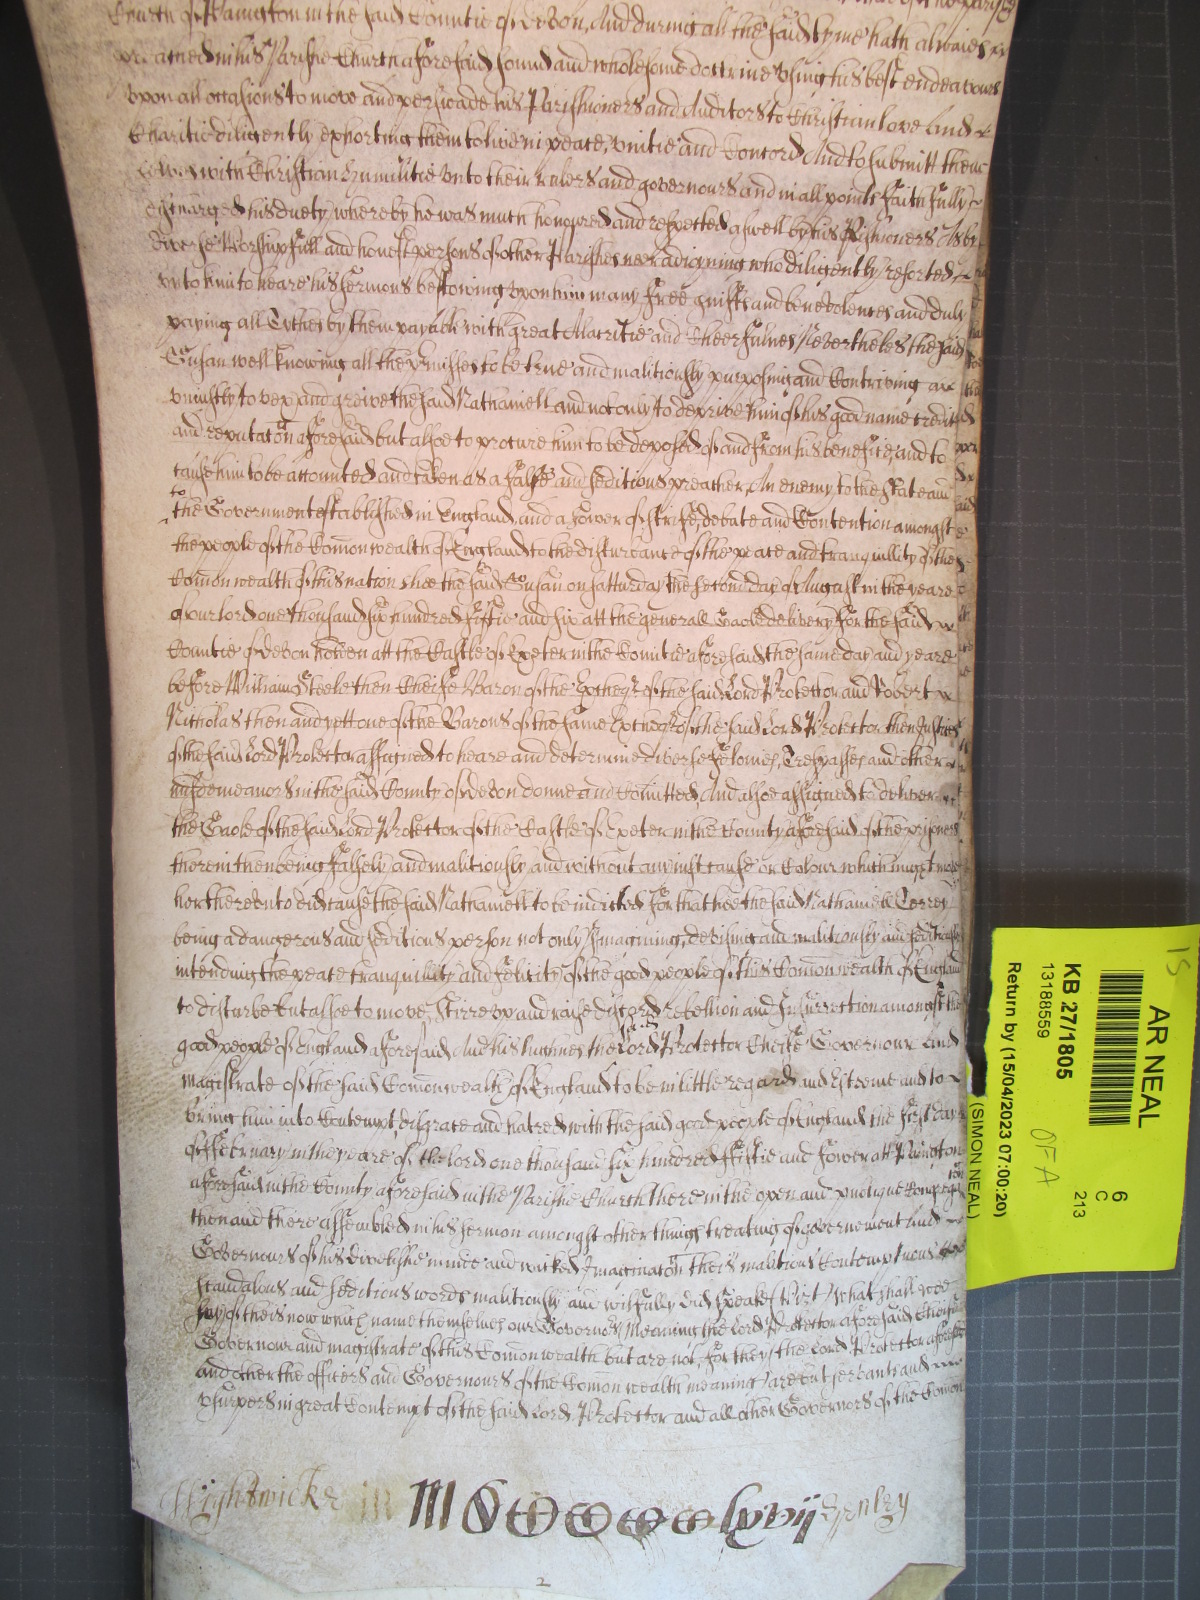 Church of Plimpton in the said Countie of Devon, And during all the said tyme hath alwaies
preached in his Parishe Church aforesaid sound and wholesome doctrine using his best endeavours
vpon all occasions to move and perswade his Parishioners and Auditors to Christian love And
Charitie diligently exhorting them to live in peace, vnitie and Concord And to submitt them
selves with Christian humilitie vnto their rulers and governours and in all points faithfully
discharged his duety whereby he was much honoured and respected aswell by his Pishioners As by
diverse Worshipfull and honest persons of other Parishes neer adioyning who diligently resorted
vnto him to heare his sermons bestowing vpon him many free guifts and benevolences and duly
paying all Tythes by them payable with great Alacritie and Cheerfulnes Nevertheles the said
Susan well knowing all the pmisses to be true and malitiously purposing and Contriving
vniustly to vex and greive the said Nathaniell and not only to deprive him of his good name credit
and reputacon aforesaid but alsoe to procure him to be deposed of and from his benefice, and to
cause him to be accounted and taken as a false and seditious preacher, An enemy to the State and
to
the Government established in England, and a sower of strife, debate and Contention amongst
the people of the Comonwealth of England to the disturbance of the peace and tranquillity of the
Comonwealth of this nation shee the said Susan on satturday the second day of August in the yeare
of our lord one thousand six hundred fiftie and six att the generall Gaole delivery for the said
Countie of Devon holden att the Castle of Exeter in the Countie aforesaid the same day and yeare
before William Steele then Cheife Baron of the Excheqr of the said Lord Protector and Robert
Nicholas then and yett one of the Barons of the same Excheqr of the said Lord Protector then Justices
of the said Lord Protector assigned to heare and determine diverse felonies, Trespasses and other
misdemeanors in the said County of Devon donne and Comitted And alsoe assigned to deliver
the Gaole of the said Lord Protector of the Castle of Exeter in the County aforesaid of the prisoners
therein then being falsely and malitiously and without any iust cause or Colour which might move
her therevnto did cause the said Nathaniell to be indicted for that hee the said Nathaniell Terrey
being a dangerous and seditious person not only Imagining, devising and malitiously and seditiously
intending the peace tranquillity and felicitie of the good people of this Comonwealth of England
to disturbe but alsoe to move, stirre vp and raise discord, rebellion and Insurrection amongst the
good people of England aforesaid And his highnes the Lord Protector Cheife Governour And
magistrate of the said Comonwealth of England to be in little regard and Esteeme and to
bring him into Contempt, disgrace and hatred with the said good people of England the first day
of February in the yeare of the lord one thousand six hundred fiftie and fower att Plimpton
aforesaid in the County aforesaid in the Parishe Church there in the open and publique Congregacon
then and there assembled in his sermon amongst other things treating of governement And
Governours of his divelishe minde and wicked Imaginacon theis malitious Contemptuous
scandalous and seditious words malitiously and wilfully did speake (vizt) what shall wee
say of theis now which name themselves our Governors (meaning the Lord Protector aforesaid Cheife
Governour and magistrate of this Comonwealth but are not, for they (the Lord Protector aforesaid
and other the officers and Governours of the Comonwealth meaning) are but servants and
vsurpers in great Contempt of the said Lord Protector and all other Governors of the Comon
Wightwicke
lxvij
2
15
AR NEAL
KB 27/1805
13188559
Return by (15/04/2023 07:00:20)
(SIMON NEAL)
OFA
6
C
213